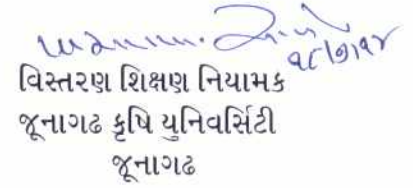 ૧૮/૭/૨૪
વિસ્તરણ શિક્ષણ નિયામક
જૂનાગઢ કૃષિ યુનિવર્સિટી
જૂનાગઢ